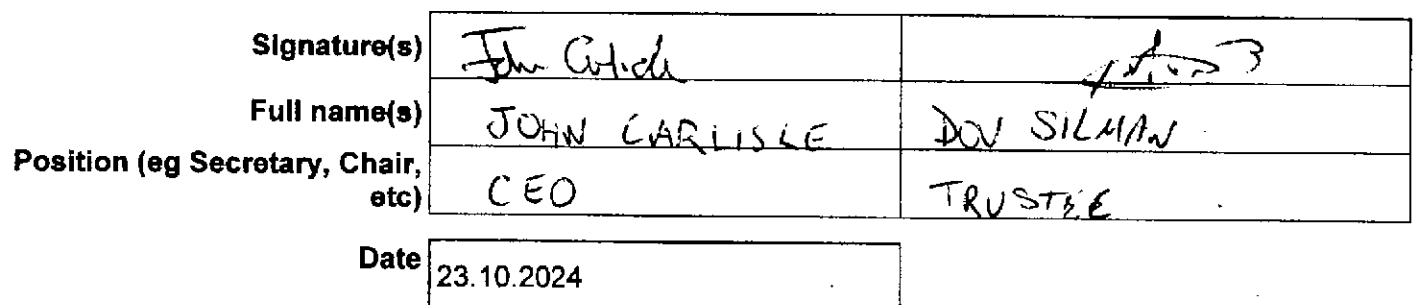 Signature(s) John Carlisle
Full name(s) JOHN CARLISLE DOV SILMAN
Position (eg Secretary, Chair,
etc) CEO TRUSTEE
Date 23.10.2024